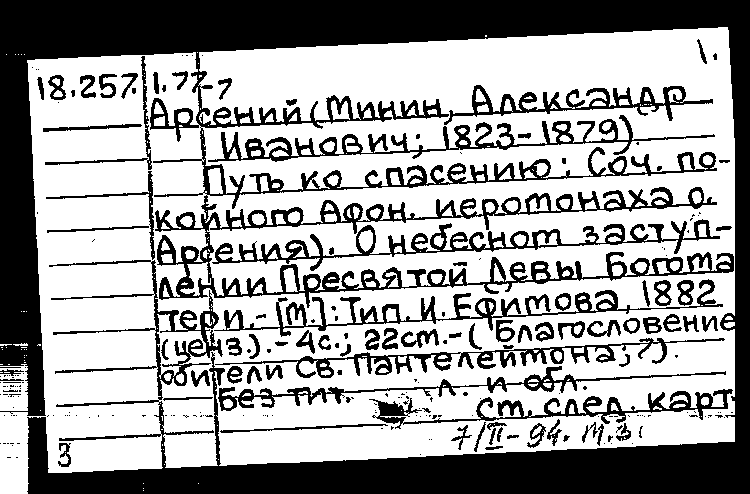 1.
18.257. 1.77-7
Арсений (Минин, Александр
Иванович; 1823-1879)
Путь ко спасению: Соч. по-
койного Афон. иеромонаха о.
Арсения). О небесном заступ-
лении Пресвятой Девы Богома
тери. - [М.]: Тип. И. Ефимова, 1882
(ценз.). - 4с.; 22см. - (Благословение
обители Св. Пантелеймона; 7).
Без тит. л. и обл.
см. след. карт.
7/II - 94. М.З.
3